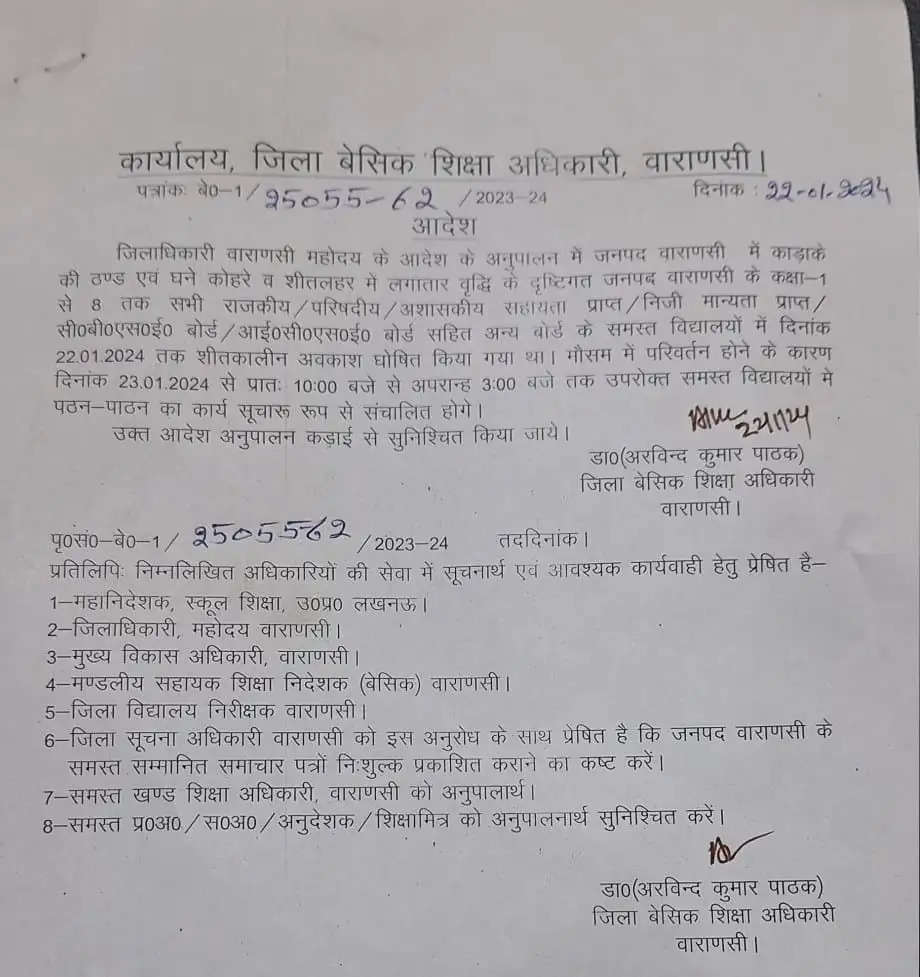 कार्यालय, जिला बेसिक शिक्षा अधिकारी, वाराणसी।
पत्रांकः बे0-1/ 25055-62 /2023-24 दिनांक : 22-01-2024
आदेश
जिलाधिकारी वाराणसी महोदय के आदेश के अनुपालन में जनपद वाराणसी में काड़ाके
की ठण्ड एवं घने कोहरे व शीतलहर में लगातार वृद्धि के दृष्टिगत जनपद वाराणसी के कक्षा-1
से 8 तक सभी राजकीय/परिषदीय/अशासकीय सहायता प्राप्त/निजी मान्यता प्राप्त/
सी0बी0एस0ई0 बोर्ड/आई0सी0एस0ई0 बोर्ड सहित अन्य बोर्ड के समस्त विद्यालयों में दिनांक
22.01.2024 तक शीतकालीन अवकाश घोषित किया गया था। मौसम में परिवर्तन होने के कारण
दिनांक 23.01.2024 से प्रातः 10:00 बजे से अपरान्ह 3:00 बजे तक उपरोक्त समस्त विद्यालयों मे
पठन-पाठन का कार्य सूचारू रुप से संचालित होगे।
उक्त आदेश अनुपालन कड़ाई से सुनिश्चित किया जाये।
22/1/24
डा0(अरविन्द कुमार पाठक)
जिला बेसिक शिक्षा अधिकारी
वाराणसी।
पृ0सं0-बे0-1/ 25055-62 /2023-24 तददिनांक।
प्रतिलिपिः निम्नलिखित अधिकारियों की सेवा में सूचनार्थ एवं आवश्यक कार्यवाही हेतु प्रेषित है-
1-महानिदेशक, स्कूल शिक्षा, उ0प्र0 लखनऊ।
2-जिलाधिकारी, महोदय वाराणसी।
3-मुख्य विकास अधिकारी, वाराणसी।
4-मण्डलीय सहायक शिक्षा निदेशक (बेसिक) वाराणसी।
5-जिला विद्यालय निरीक्षक वाराणसी।
6-जिला सूचना अधिकारी वाराणसी को इस अनुरोध के साथ प्रेषित है कि जनपद वाराणसी के
समस्त सम्मानित समाचार पत्रों निःशुल्क प्रकाशित कराने का कष्ट करें।
7-समस्त खण्ड शिक्षा अधिकारी, वाराणसी को अनुपालार्थ।
8-समस्त प्र0अ0/स0अ0/अनुदेशक/शिक्षामित्र को अनुपालनार्थ सुनिश्चित करें।
डा0(अरविन्द कुमार पाठक)
जिला बेसिक शिक्षा अधिकारी
वाराणसी।